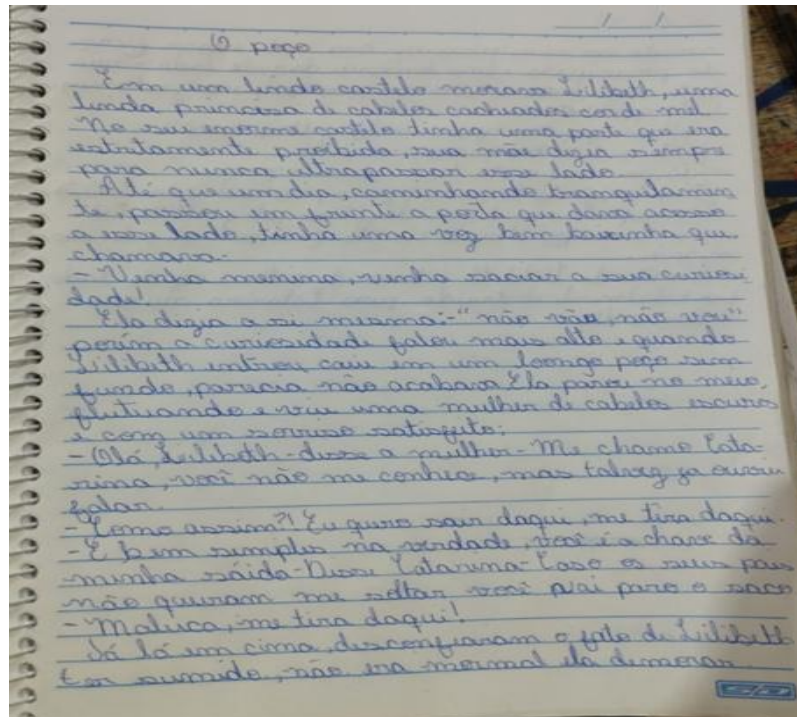 / /
O poço
Em um lindo castelo morava Lilibeth, uma
linda princesa de cabelos cacheados cor de mel.
No seu enorme castelo tinha uma parte que era
estritamente proibida, sua mãe dizia sempre
para nunca ultrapassar esse lado.
Até que um dia, caminhando tranquilamen
te, passou em frente a porta que dava acesso
a esse lado, tinha uma voz bem baixinha que
chamava:
- Venha menina, venha saciar a sua curiosi
dade!
Ela dizia a si mesma:-"não vou, não vou"
porém a curiosidade falou mais alto e quando
Lilibeth entrou caiu em um loongo poço sem
fundo, parecia não acabava. Ela parou no meio,
flutuando e viu uma mulher de cabelos escuros
e com um sorriso satisfeito:
- Olá, Lilibeth - disse a mulher - Me chamo Cata-
rina, você não me conhece, mas talvez ja ouviu
falar.
- Como assim?! Eu quero sair daqui, me tira daqui.
- É bem simples na verdade, você é a chave da
minha saída - Disse Catarina - Caso os seus pais
não queiram me soltar você vai para o saco
- Maluca, me tira daqui!
Já lá em cima, desconfiaram o fato de Lilibeth
ter sumido, não era normal ela demorar